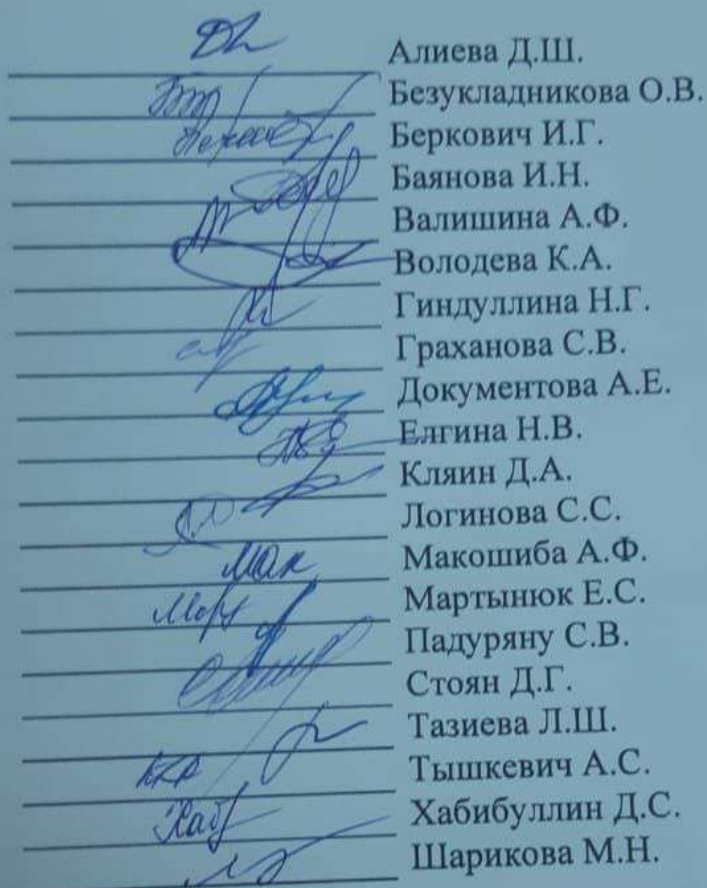 Алиева Д.Ш.
Безукладникова О.В.
Беркович И.Г.
Баянова И.Н.
Валишина А.Ф.
Володева К.А.
Гиндуллина Н.Г.
Граханова С.В.
Документова А.Е.
Елгина Н.В.
Кляин Д.А.
Логинова С.С.
Мак Макошиба А.Ф.
Мартынюк Е.С.
Падуряну С.В.
Стоян Д.Г.
Тазиева Л.Ш.
Тышкевич А.С.
Хаб Хабибуллин Д.С.
Шарикова М.Н.